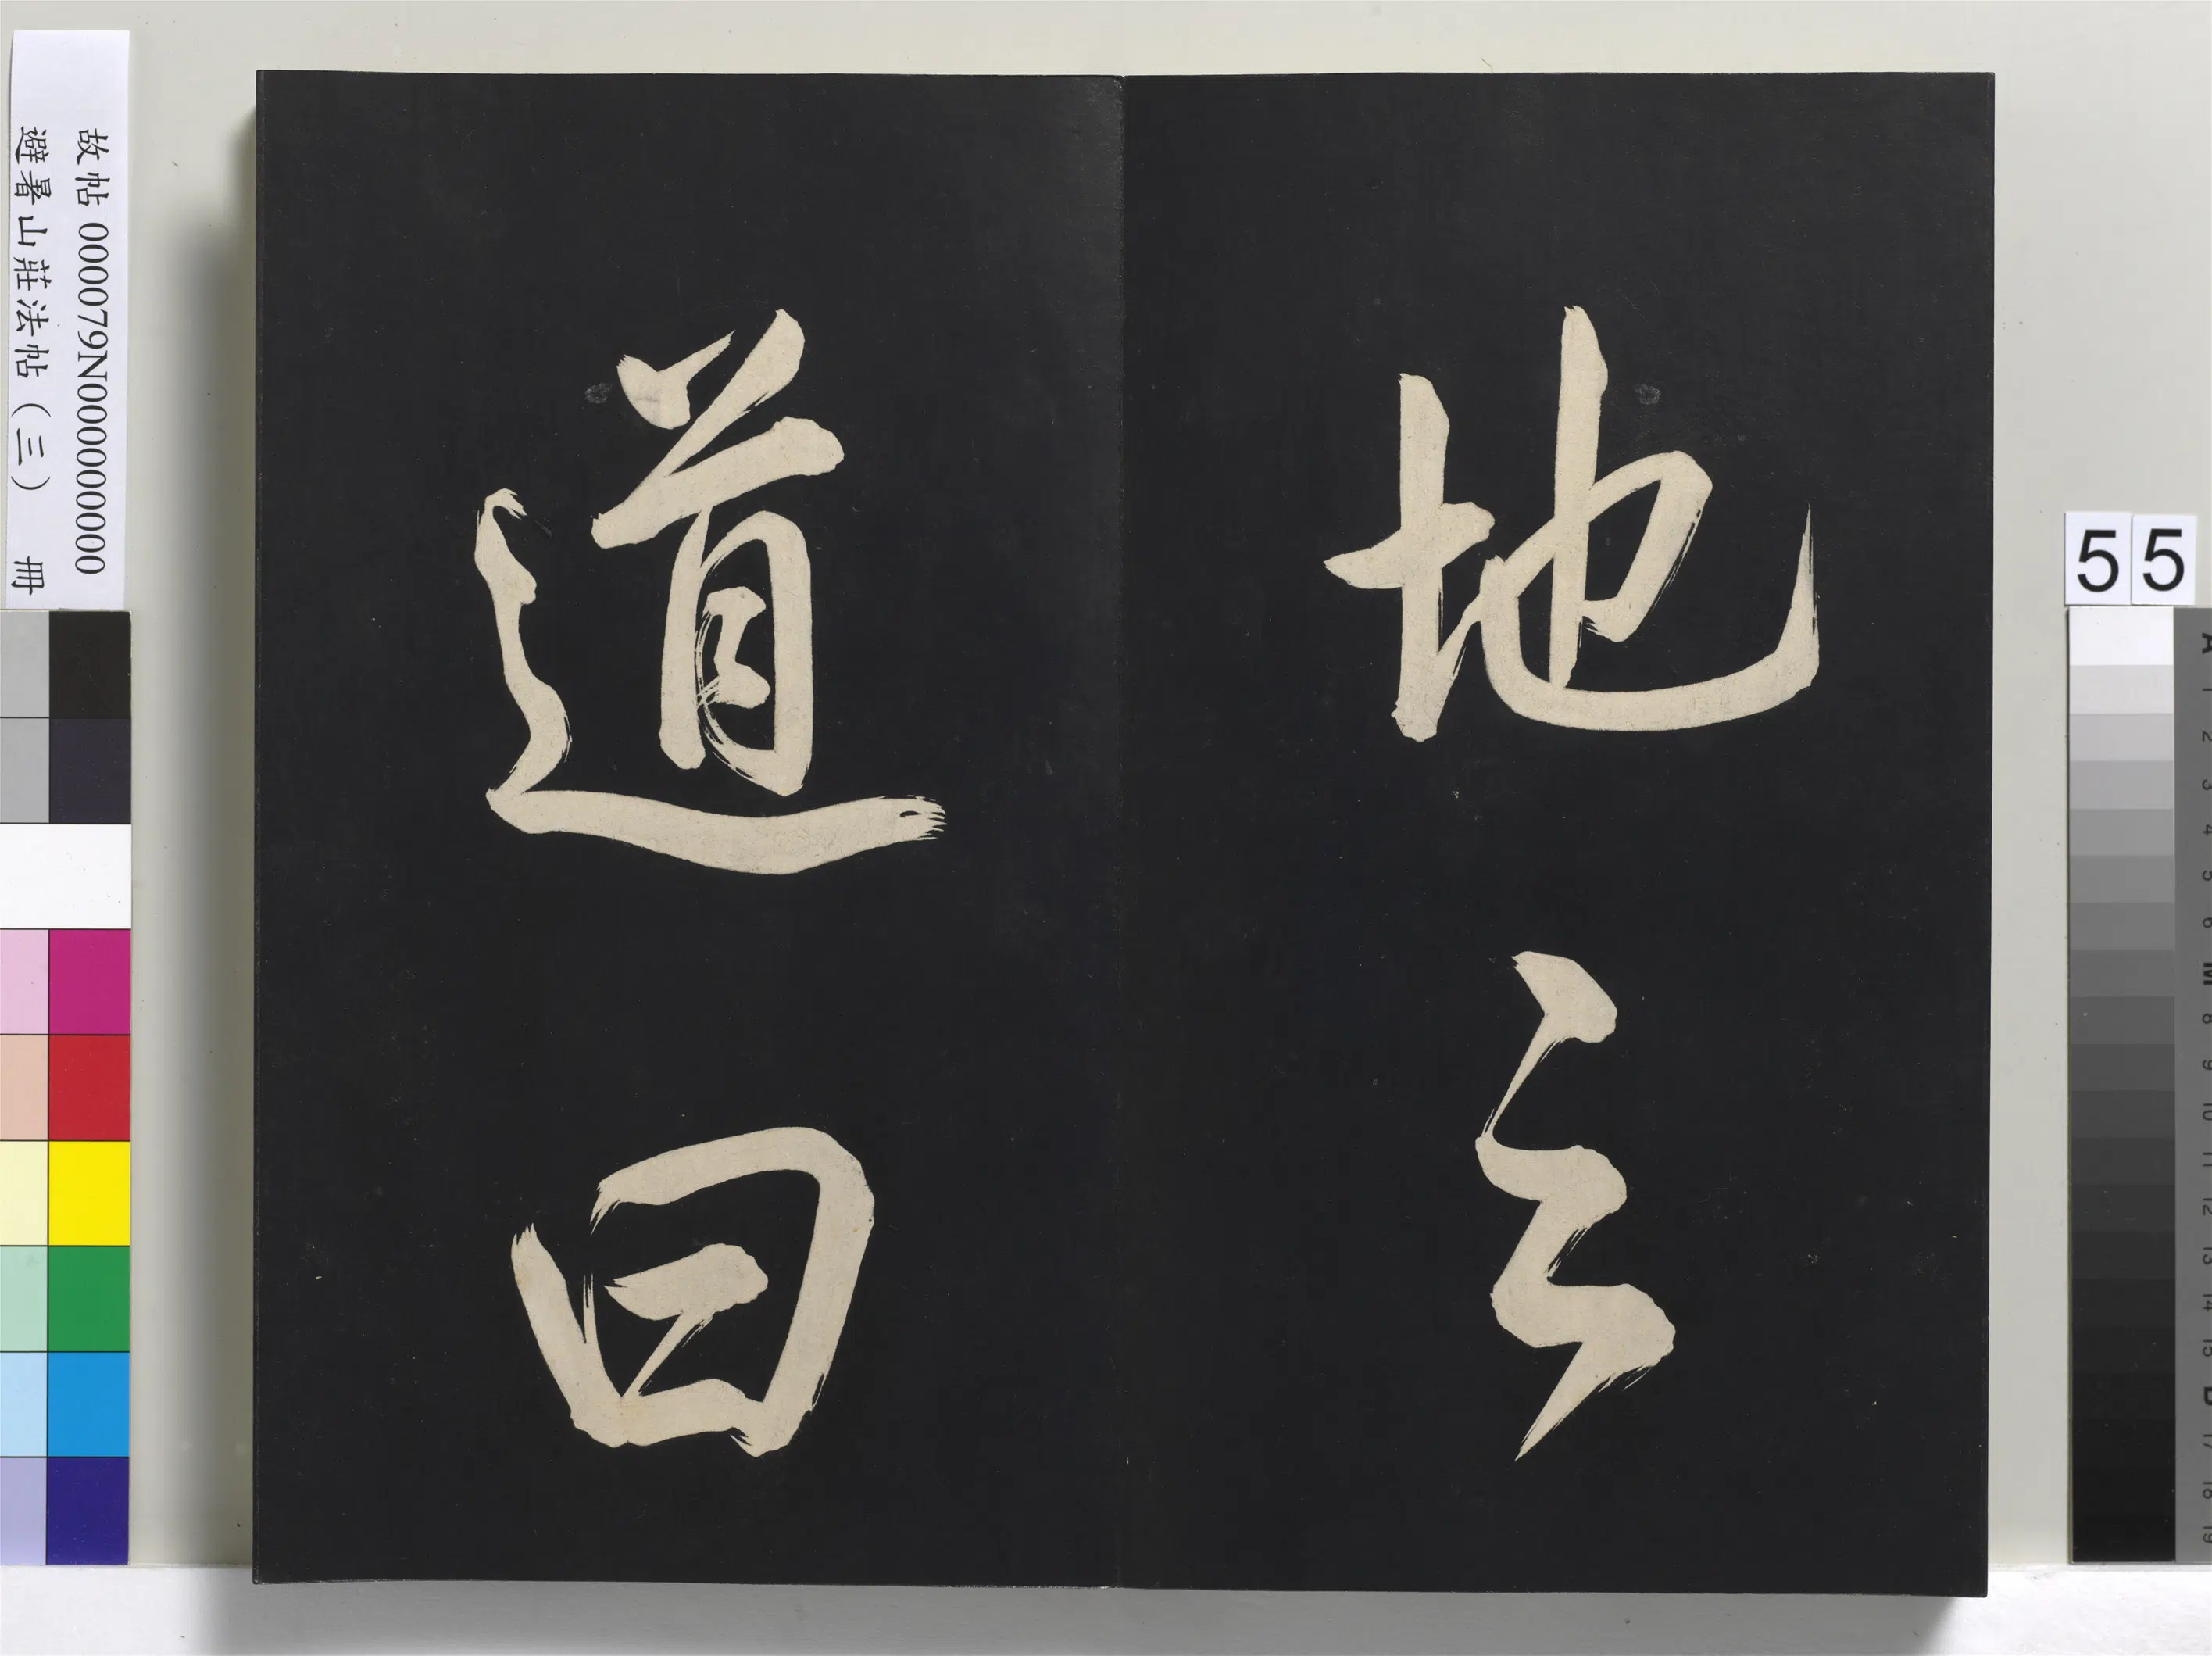 地之
道曰
故帖 000079N000000000
避暑山莊法帖（三） 冊
55
A
1
2
3
4
5
6
M
8
9
10
11
12
13
14
15
B
17
18
19